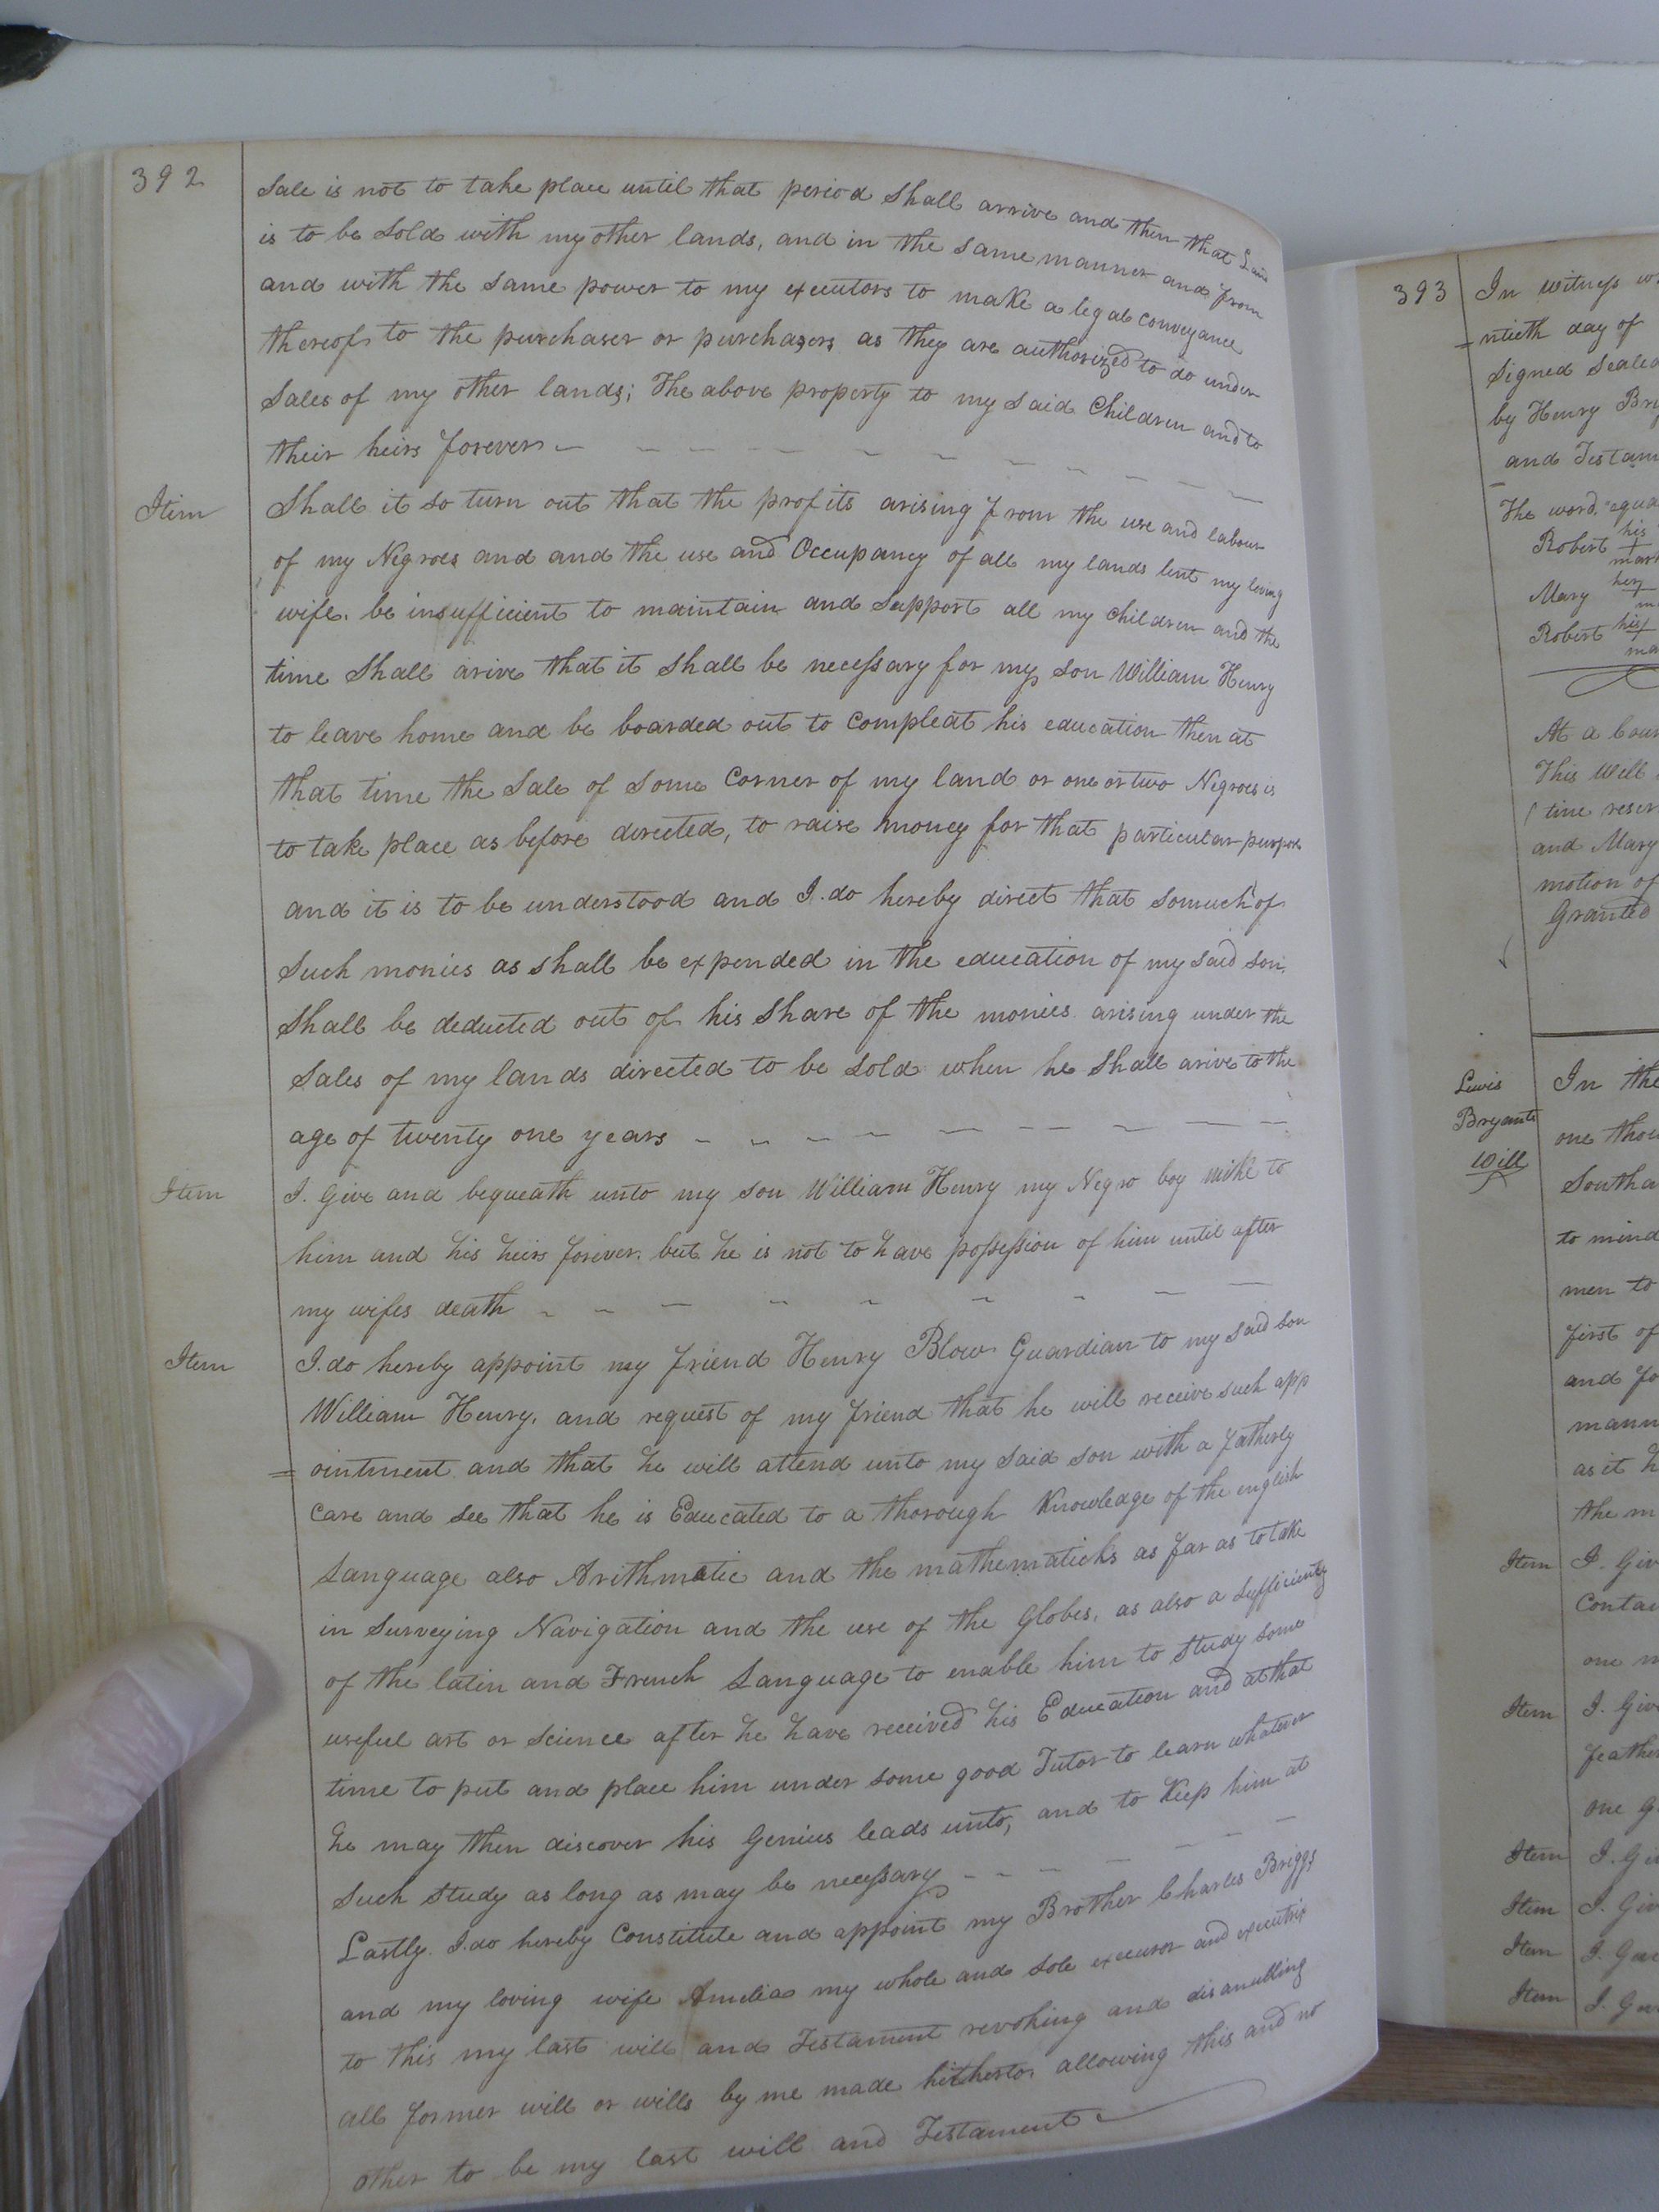 392
Sale is not to take place until that period shall arrive and then that Land
is to be sold with my other lands, and in the same manner and from
and with the same power to my executors to make a legal conveyance
thereof to the purchaser or purchasers as they are authorized to do under
Sales of my other lands; The above property to my said Children and to
their heirs forever
Item Shall it so turn out that the profits arising from the use and labour
of my Negroes and and the use and Occupancy of all my lands lent my loving
wife. be insufficient to maintain and Support all my children and the
time Shall arive that it shall be necessary for my son William Henry
to leave home and be boarded out to compleat his education then at
that time the Sale of Some Corner of my land or one or two Negroes is
to take place as before directed, to raise money for that particular purpose
and it is to be understood and I. do hereby direct that somuch of
Such monies as shall be expended in the education of my said son,
Shall be deducted out of his Share of the monies arising under the
Sales of my lands directed to be Sold when he Shall arive to the
age of twenty one years
Item I. Give and bequeath unto my son William Henry my Negro boy mike to
him and his heirs forever. but he is not to have possession of him until after
my wifes death
Item I. do hereby appoint my friend Henry Blow Guardian to my said son
William Henry. and request of my friend that he will receive such app
= ointment and that he will attend unto my said son with a fatherly
care and see that he is Educated to a thorough Knowledge of the english
Language also Arithmatic and the mathematicks as far as to take
in Surveying Navigation and the use of the Globes, as also a Sufficiency
of the latin and French Language to enable him to Study some
useful art or science after he have received his Education and at that
time to put and place him under some good Tutor to learn whatever
he may then discover his Genius leads unto, and to Keep him at
Such Study as long as may be necessary
Lastly. I. do hereby Constitute and appoint my Brother Charles Briggs
and my loving wife Amelia my whole and sole executor and executrix
to this my last will and Testament revoking and disanulling
all former will or wills by me made hitherto. allowing this and no
other to be my last will and Testament
393 In witness
ntieth day of
Signed Sealed
by Henry
and
The word
Robert his
mark
Mary her
Robert his
At a
This Will
time
and Mary
motion of
Granted
Lewis
Bryants
Will
In the
one
to mind
men to
first of
and
as it
the
Item I.
one
Item I. Give
one
Item I.
Item I.
Item I.
Item I.